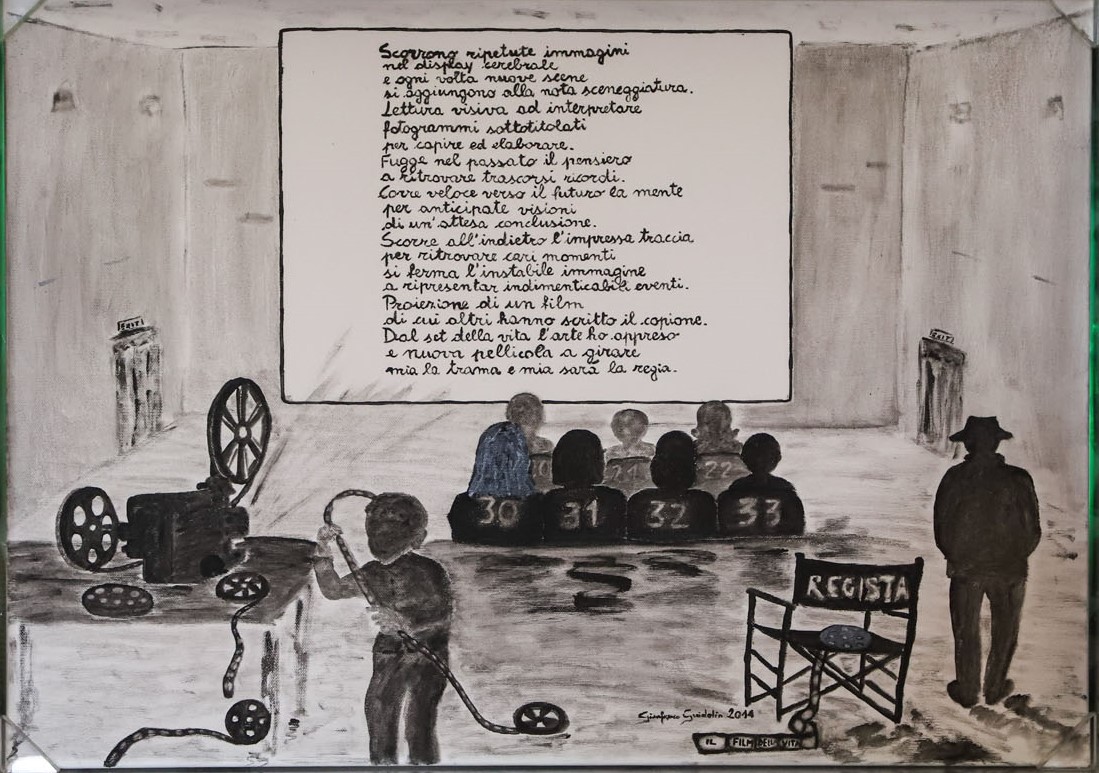 Scorrono ripetute immagini
nel display cerebrale
e ogni volta nuove scene
si aggiungono alla nota sceneggiatura.
Lettura visiva ad interpretare
fotogrammi sottotitolati
per capire ed elaborare.
Fugge nel passato il pensiero
a ritrovare trascorsi ricordi.
Corre veloce verso il futuro la mente
per anticipate visioni
di un'attesa conclusione.
Scorre all'indietro l'impressa traccia
per ritrovare cari momenti
si ferma l'instabile immagine
a ripresentar indimenticabili eventi.
Proiezione di un film
di cui altri hanno scritto il copione.
Dal set della vita l'arte ho appreso
e nuova pellicola a girare
mia la trama e mia sarà la regia.
20 21 22
30 31 32 33
REGISTA
Gianfranco Guidolin 2014
IL FILM DELLA VITA